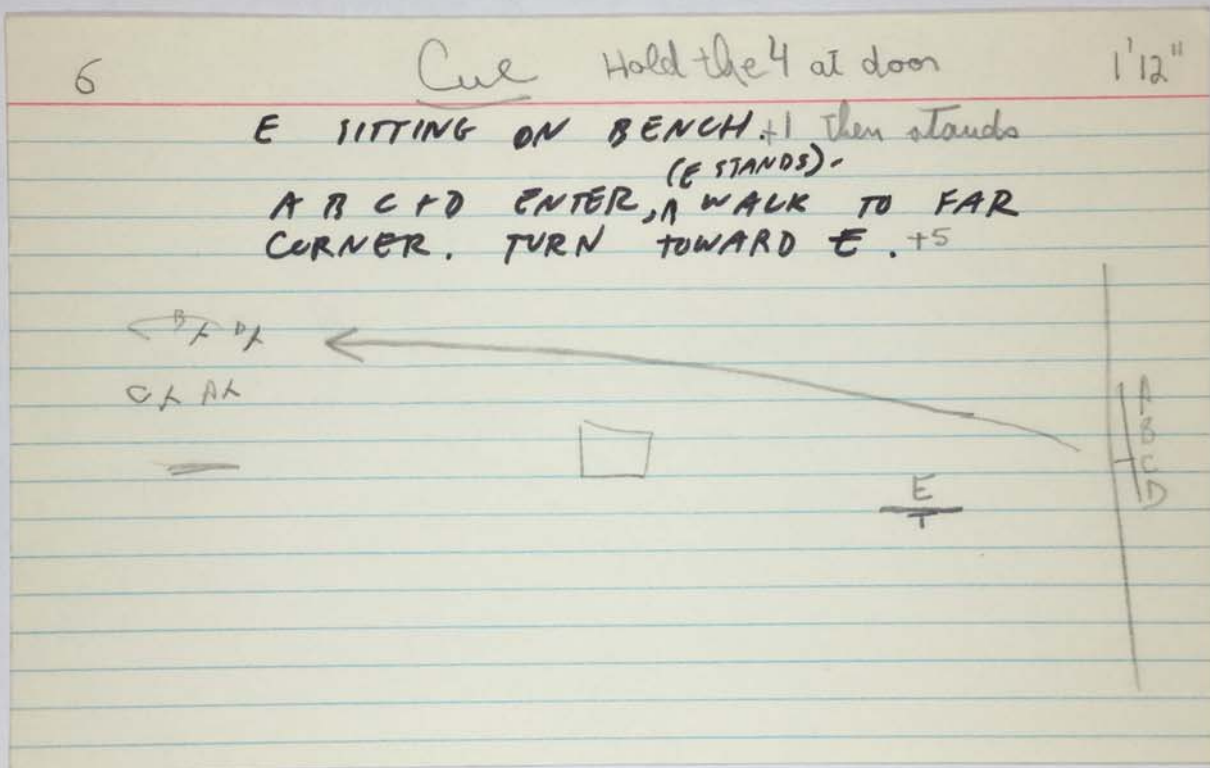 6 Cue Hold the 4 at door 1'12"
E SITTING ON BENCH. +1 then stands
(E STANDS).
A B C + D ENTER, WALK TO FAR
CORNER. TURN TOWARD E. +5
B D
C A
A
B
C
D
E